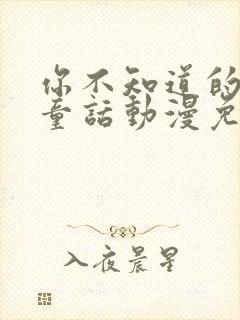 你不知道的
童話動漫免
入夜晨星